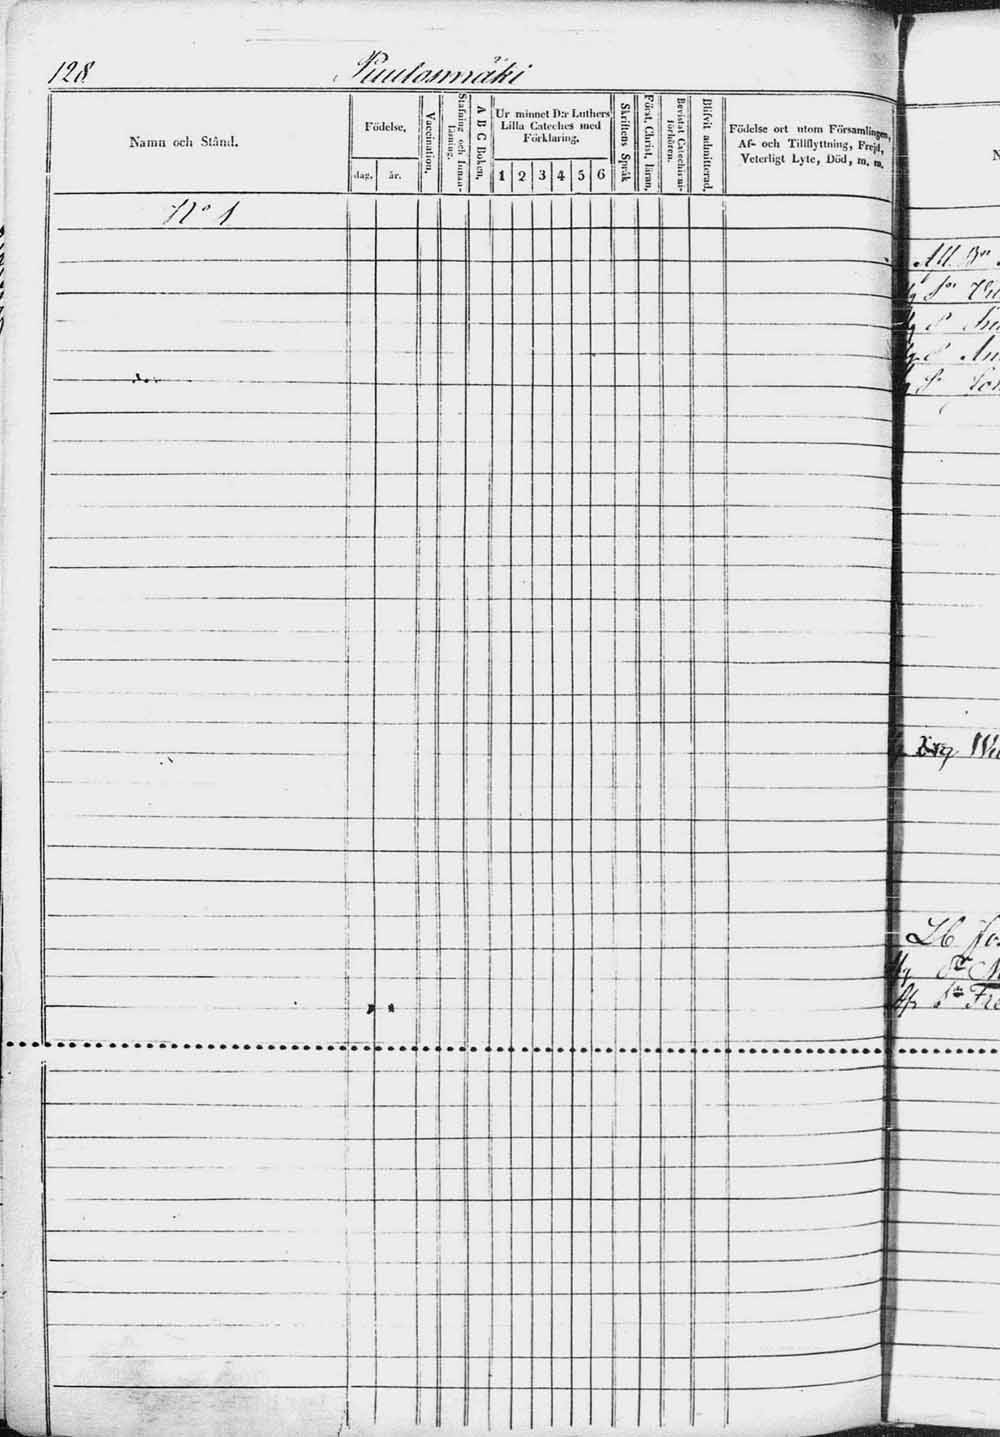 128. Puulosmäki
Namn och Stånd.
Födelse,
dag. år.
Vaccination,
Stafning och Innan-
läsning.
A B C Boken,
Ur minnet D:r Luthers
Lilla Cateches med
Förklaring.
1 2 3 4 5 6
Skriftens Språk
Först. Christ. läran,
Bevistat Catechismi-
förhören.
Blifvit admitterad.
Födelse ort utom Församlingen,
Af- och Tillflyttning, Frejd,
Veterligt Lyte, Död, m. m.
No 1